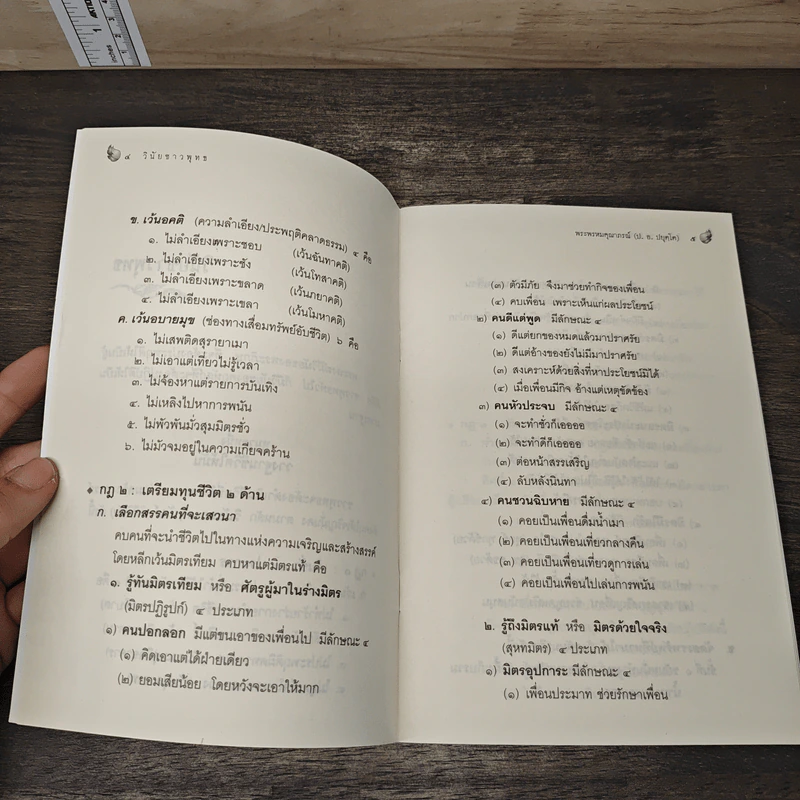 ๔ วินัยชาวพุทธ
ข. เว้นอคติ (ความลำเอียง/ประพฤติคลาดธรรม) ๔ คือ
๑. ไม่ลำเอียงเพราะชอบ (เว้นฉันทาคติ)
๒. ไม่ลำเอียงเพราะชัง (เว้นโทสาคติ)
๓. ไม่ลำเอียงเพราะขลาด (เว้นภยาคติ)
๔. ไม่ลำเอียงเพราะเขลา (เว้นโมหาคติ)
ค. เว้นอบายมุข (ช่องทางเสื่อมทรัพย์อับชีวิต) ๖ คือ
๑. ไม่เสพติดสุรายาเมา
๒. ไม่เอาแต่เที่ยวไม่รู้เวลา
๓. ไม่จ้องหาแต่รายการบันเทิง
๔. ไม่เหลิงไปหาการพนัน
๕. ไม่พัวพันมั่วสุมมิตรชั่ว
๖. ไม่มัวจมอยู่ในความเกียจคร้าน
กฎ ๒ : เตรียมทุนชีวิต ๒ ด้าน
ก. เลือกสรรคนที่จะเสวนา
คบคนที่จะนำชีวิตไปในทางแห่งความเจริญและสร้างสรรค์
โดยหลีกเว้นมิตรเทียม คบหาแต่มิตรแท้ คือ
๑. รู้ทันมิตรเทียม หรือ ศัตรูผู้มาในร่างมิตร
(มิตรปฏิรูปก์) ๔ ประเภท
๑) คนปอกลอก มีแต่ขนเอาของเพื่อนไป มีลักษณะ ๔
(๑) คิดเอาแต่ได้ฝ่ายเดียว
(๒) ยอมเสียน้อย โดยหวังจะเอาให้มาก
พระพรหมคุณาภรณ์ (ป. อ. ปยุตฺโต) ๕
(๓) ตัวมีภัย จึงมาช่วยทำกิจของเพื่อน
(๔) คบเพื่อน เพราะเห็นแก่ผลประโยชน์
๒) คนดีแต่พูด มีลักษณะ ๔
(๑) ดีแต่ยกของหมดแล้วมาปราศรัย
(๒) ดีแต่อ้างของยังไม่มีมาปราศรัย
(๓) สงเคราะห์ด้วยสิ่งที่หาประโยชน์มิได้
(๔) เมื่อเพื่อนมีกิจ อ้างแต่เหตุขัดข้อง
๓) คนหัวประจบ มีลักษณะ ๔
(๑) จะทำชั่วก็เออออ
(๒) จะทำดีก็เออออ
(๓) ต่อหน้าสรรเสริญ
(๔) ลับหลังนินทา
๔) คนชวนฉิบหาย มีลักษณะ ๔
(๑) คอยเป็นเพื่อนดื่มน้ำเมา
(๒) คอยเป็นเพื่อนเที่ยวกลางคืน
(๓) คอยเป็นเพื่อนเที่ยวดูการเล่น
(๔) คอยเป็นเพื่อนไปเล่นการพนัน
๒. รู้ถึงมิตรแท้ หรือ มิตรด้วยใจจริง
(สุหทมิตร) ๔ ประเภท
๑) มิตรอุปการะ มีลักษณะ ๔
(๑) เพื่อนประมาท ช่วยรักษาเพื่อน